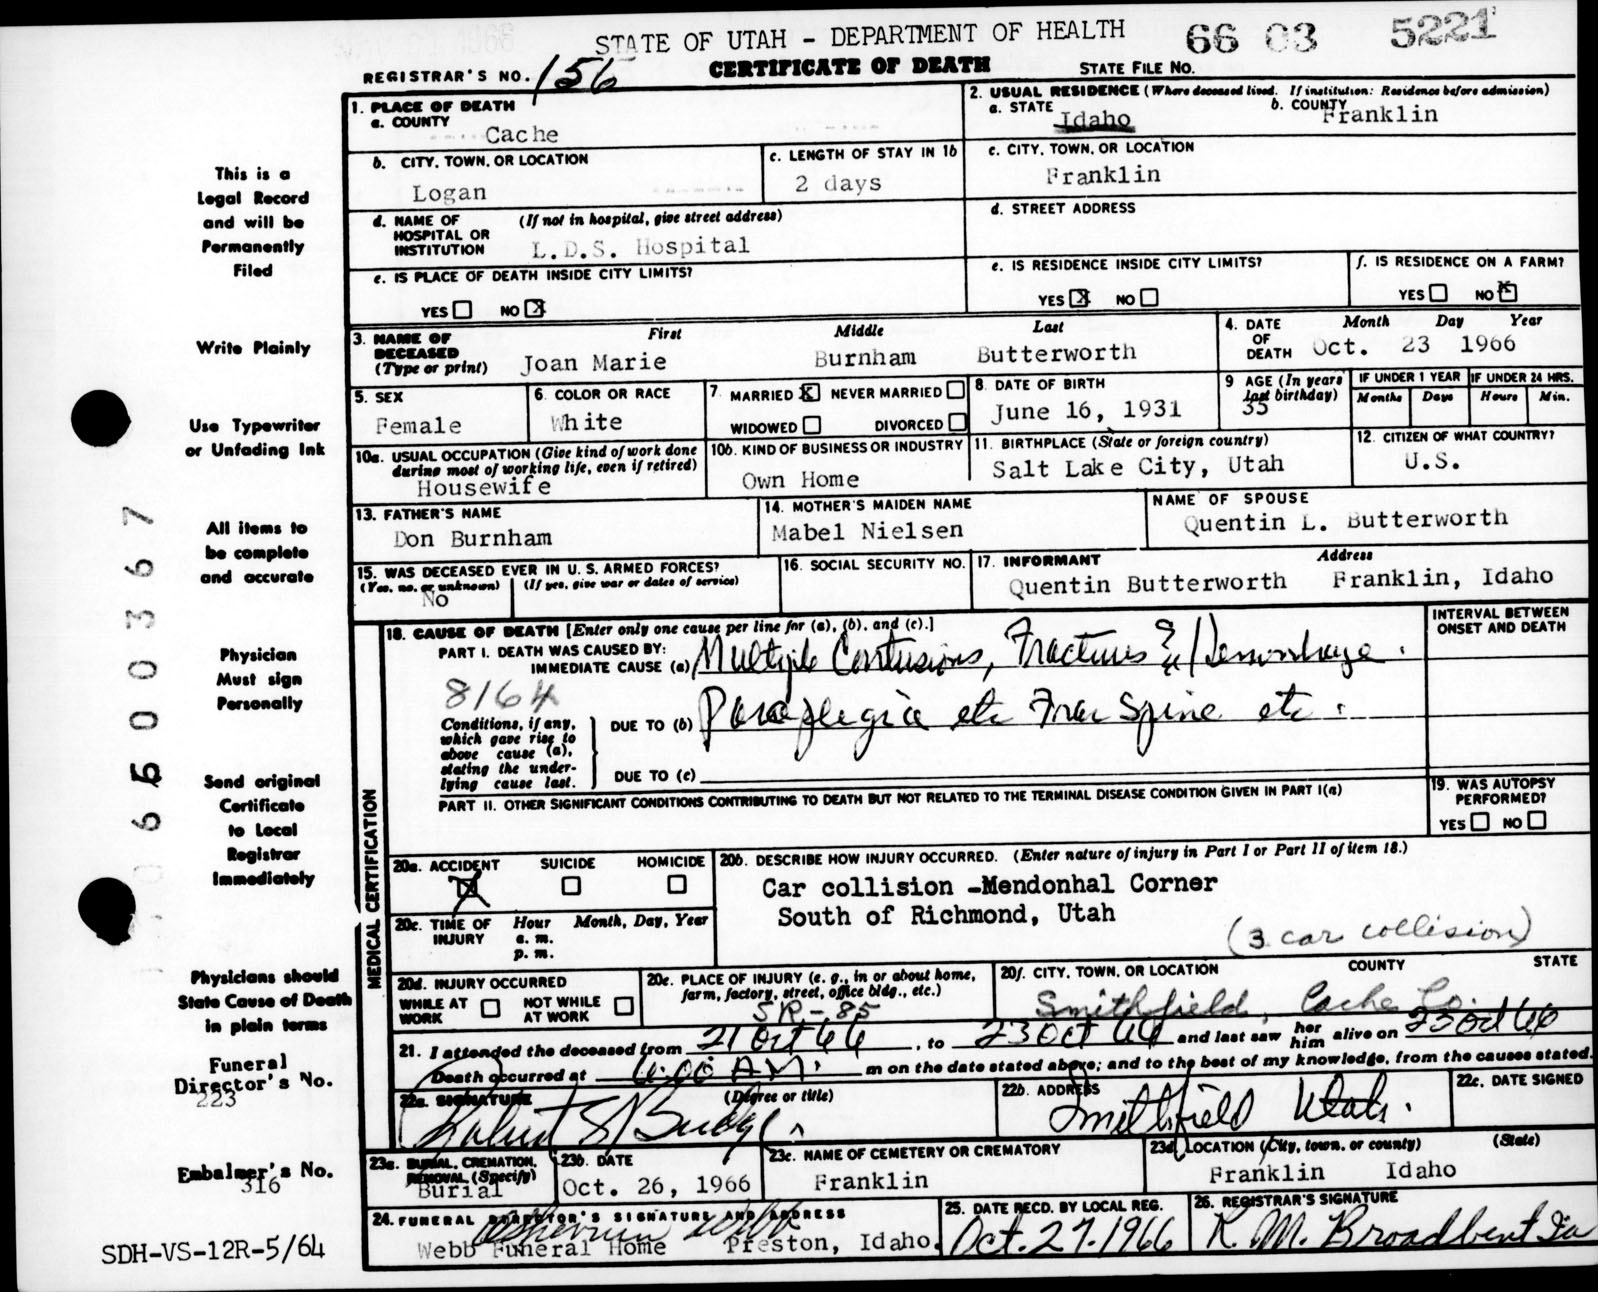 STATE OF UTAH - DEPARTMENT OF HEALTH 66 03 5221
CERTIFICATE OF DEATH
REGISTRAR'S NO. 156 STATE FILE NO.
This is a
Legal Record
and will be
Permanently
Filed
Write Plainly
Use Typewriter
or Unfading Ink
All items to
be complete
and accurate
Physician
Must sign
Personally
Send original
Certificate
to Local
Registrar
Immediately
Physicians should
State Cause of Death
in plain terms
Funeral
Director's No.
223
Embalmer's No.
316
SDH-VS-12R-5/64
1. PLACE OF DEATH
a. COUNTY
Cache
2. USUAL RESIDENCE (Where deceased lived. If institution: Residence before admission)
a. STATE Idaho b. COUNTY Franklin
b. CITY, TOWN, OR LOCATION
Logan
c. LENGTH OF STAY IN 1b
2 days
c. CITY, TOWN, OR LOCATION
Franklin
d. NAME OF HOSPITAL OR INSTITUTION (If not in hospital, give street address)
L.D.S. Hospital
d. STREET ADDRESS
e. IS PLACE OF DEATH INSIDE CITY LIMITS?
YES NO X
e. IS RESIDENCE INSIDE CITY LIMITS?
YES X NO
f. IS RESIDENCE ON A FARM?
YES NO X
3. NAME OF DECEASED (Type or print) First Middle Last
Joan Marie Burnham Butterworth
4. DATE OF DEATH Month Day Year
Oct. 23 1966
5. SEX
Female
6. COLOR OR RACE
White
7. MARRIED X NEVER MARRIED
WIDOWED DIVORCED
8. DATE OF BIRTH
June 16, 1931
9 AGE (In years last birthday)
35
IF UNDER 1 YEAR IF UNDER 24 HRS.
Months Days Hours Min.
10a. USUAL OCCUPATION (Give kind of work done during most of working life, even if retired)
Housewife
10b. KIND OF BUSINESS OR INDUSTRY
Own Home
11. BIRTHPLACE (State or foreign country)
Salt Lake City, Utah
12. CITIZEN OF WHAT COUNTRY?
U.S.
13. FATHER'S NAME
Don Burnham
14. MOTHER'S MAIDEN NAME
Mabel Nielsen
NAME OF SPOUSE
Quentin L. Butterworth
15. WAS DECEASED EVER IN U. S. ARMED FORCES?
(Yes, no, or unknown) (If yes, give war or dates of service)
No
16. SOCIAL SECURITY NO.
17. INFORMANT Address
Quentin Butterworth Franklin, Idaho
MEDICAL CERTIFICATION
18. CAUSE OF DEATH [Enter only one cause per line for (a), (b), and (c).]
INTERVAL BETWEEN ONSET AND DEATH
PART I. DEATH WAS CAUSED BY:
IMMEDIATE CAUSE (a) Multiple Contusions, Fractures & Hemorrhage.
8164
Conditions, if any, which gave rise to above cause (a), stating the underlying cause last.
DUE TO (b) Paraplegia etc Frac Spine etc.
DUE TO (c)
PART II. OTHER SIGNIFICANT CONDITIONS CONTRIBUTING TO DEATH BUT NOT RELATED TO THE TERMINAL DISEASE CONDITION GIVEN IN PART I(a)
19. WAS AUTOPSY PERFORMED?
YES NO
20a. ACCIDENT SUICIDE HOMICIDE
X
20b. DESCRIBE HOW INJURY OCCURRED. (Enter nature of injury in Part I or Part II of item 18.)
Car collision -Mendonhal Corner
South of Richmond, Utah
(3 car collision)
20c. TIME OF INJURY Hour Month, Day, Year
a. m.
p. m.
20d. INJURY OCCURRED
WHILE AT WORK NOT WHILE AT WORK
20e. PLACE OF INJURY (e. g., in or about home, farm, factory, street, office bldg., etc.)
SR-85
20f. CITY, TOWN, OR LOCATION COUNTY STATE
Smithfield, Cache Co.
21. I attended the deceased from 21 Oct 66, to 23 Oct 66 and last saw her him alive on 23 Oct 66
Death occurred at 6:00 AM. m on the date stated above; and to the best of my knowledge, from the causes stated.
22a. SIGNATURE (Degree or title)
Robert S Budge
22b. ADDRESS
Smithfield Utah.
22c. DATE SIGNED
23a. BURIAL, CREMATION, REMOVAL (Specify)
Burial
23b. DATE
Oct. 26, 1966
23c. NAME OF CEMETERY OR CREMATORY
Franklin
23d. LOCATION (City, town, or county) (State)
Franklin Idaho
24. FUNERAL DIRECTOR'S SIGNATURE AND ADDRESS
Webb Funeral Home Preston, Idaho.
25. DATE RECD. BY LOCAL REG.
Oct. 27. 1966
26. REGISTRAR'S SIGNATURE
K. M. Broadbent